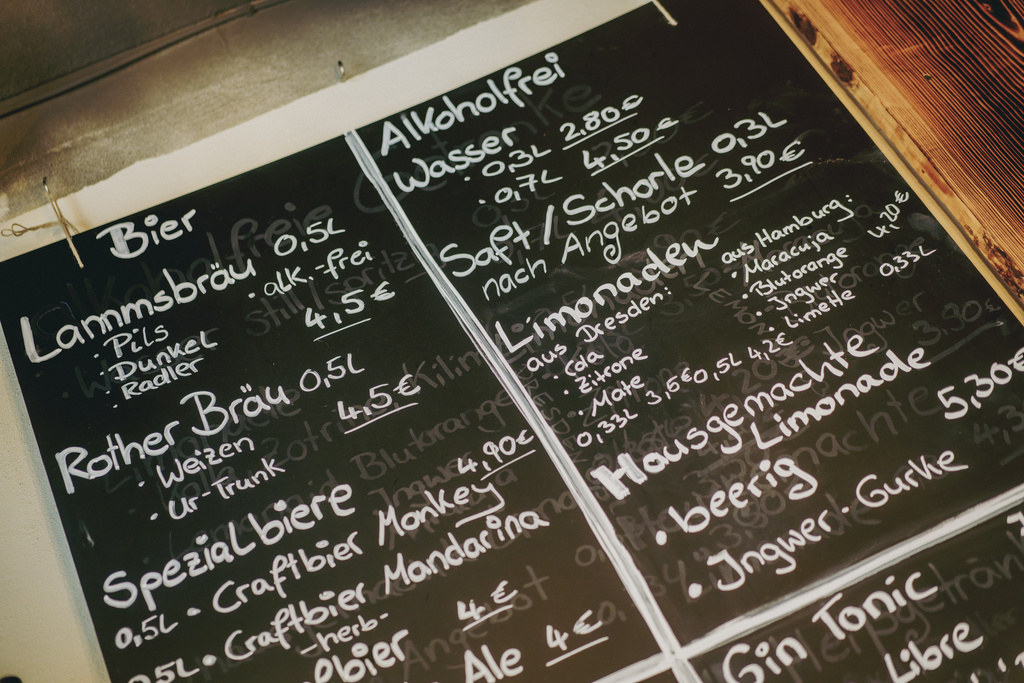 Bier
Lammsbräu 0,5L
· Pils · alk.-frei
· Dunkel 4,5€
· Radler
Rother Bräu 0,5L
· Weizen 4,5€
· Ur-Trunk
Spezialbiere 4,90€
0,5L · Craftbier Monkey
0,5L · Craftbier Mandarina
-herb-
4€
Ale 4€
Alkoholfrei
Wasser
· 0,3L 2,80€
· 0,7L 4,50€
Saft/Schorle 0,3L
nach Angebot 3,90€
Limonaden
aus Dresden:
· Cola
· Zitrone
· Mate
0,33L 3,5€ 0,5L 4,2€
aus Hamburg:
· Maracuja 4,20€
· Blutorange
· Ingwer 0,33L
· Limette
Hausgemachte
Limonade
5,30€
· beerig
· Ingwer-Gurke
Gin Tonic
Libre